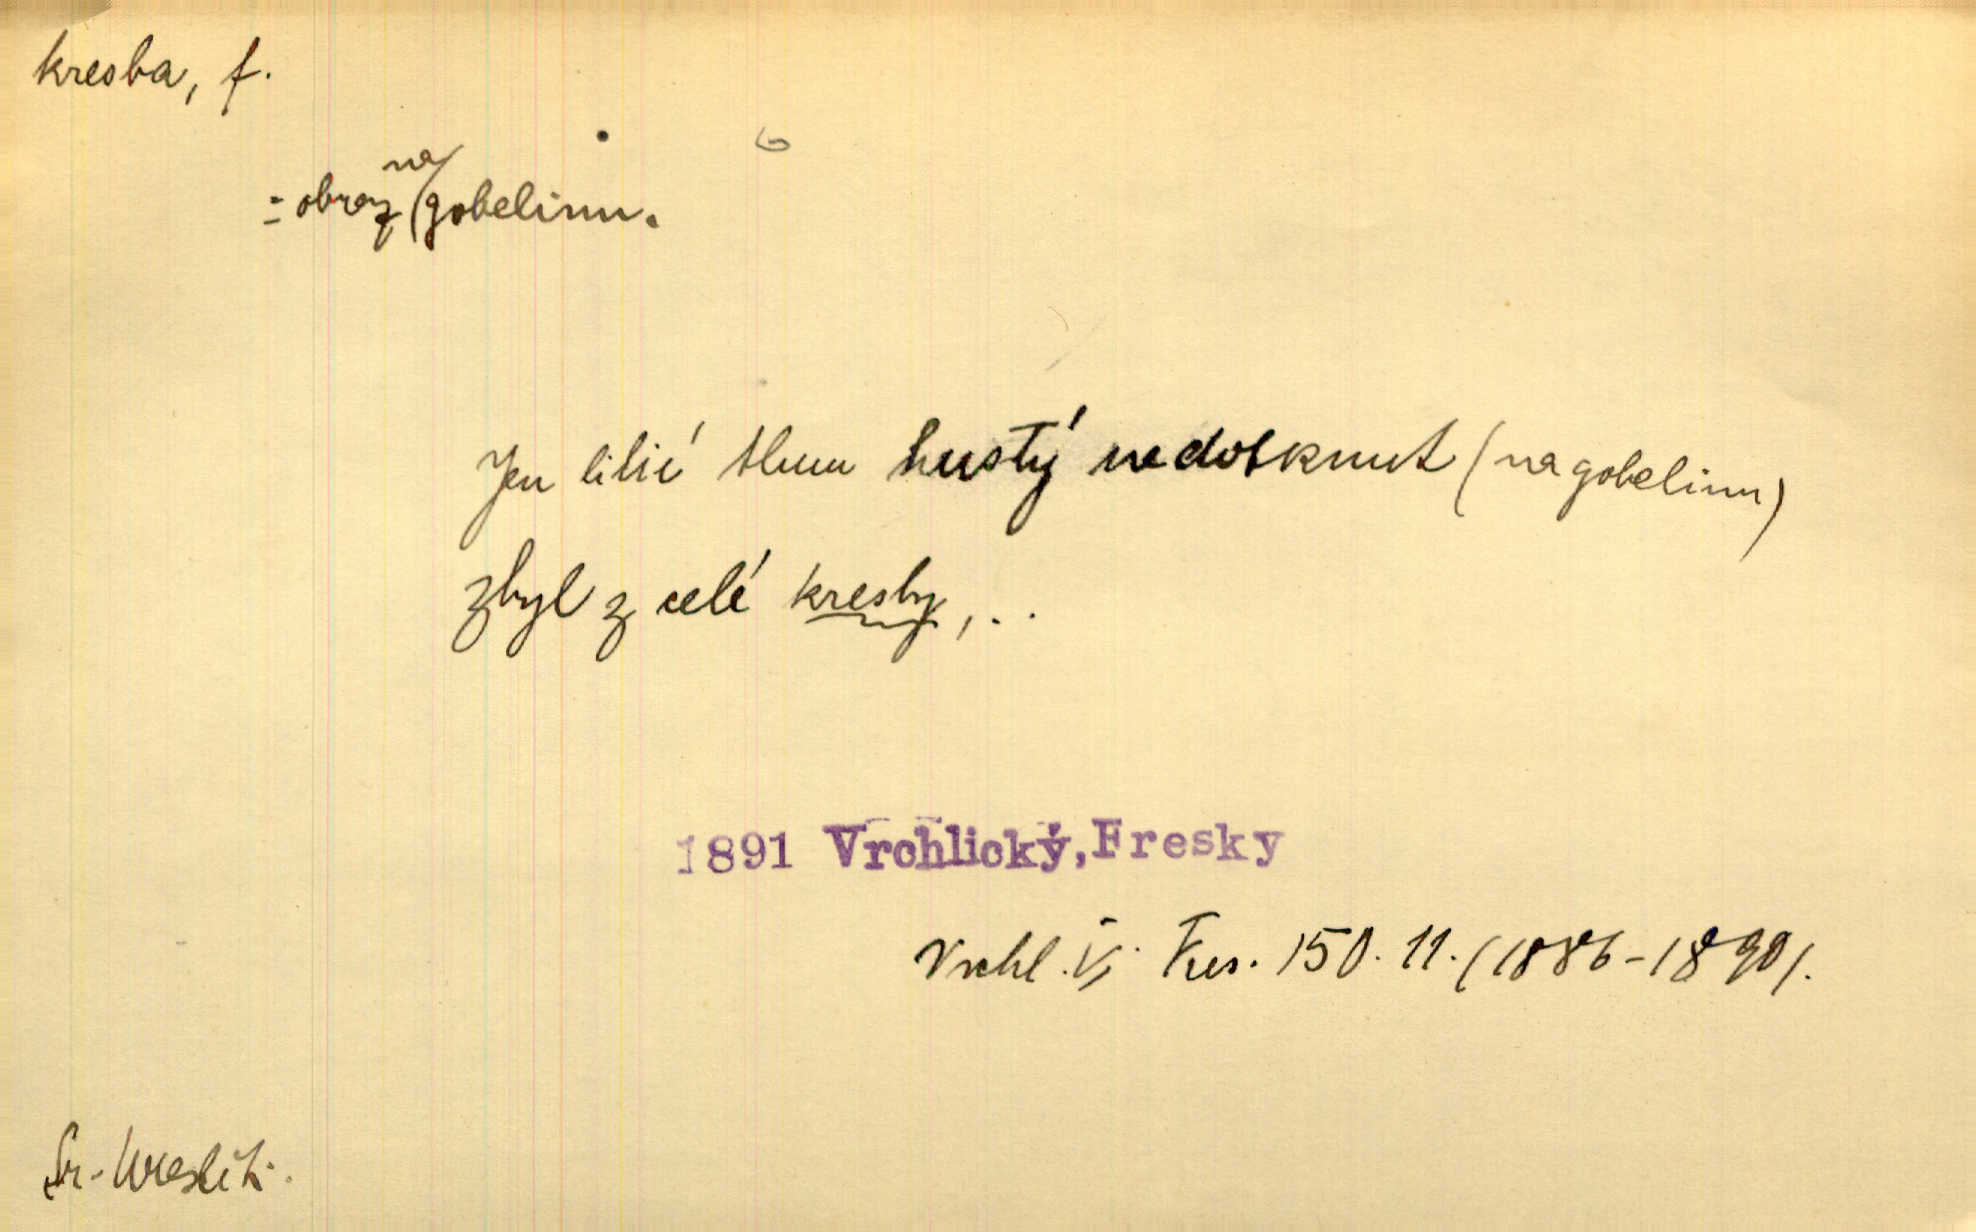 kresba, f.
= obraz na gobelinu.
Jen lilií tlum hustý nedotknut (na gobelinu)
zbyl z celé kresby, ..
1891 Vrchlický, Fresky
Vrchl. Fres. 150. 11. (1886-1890).